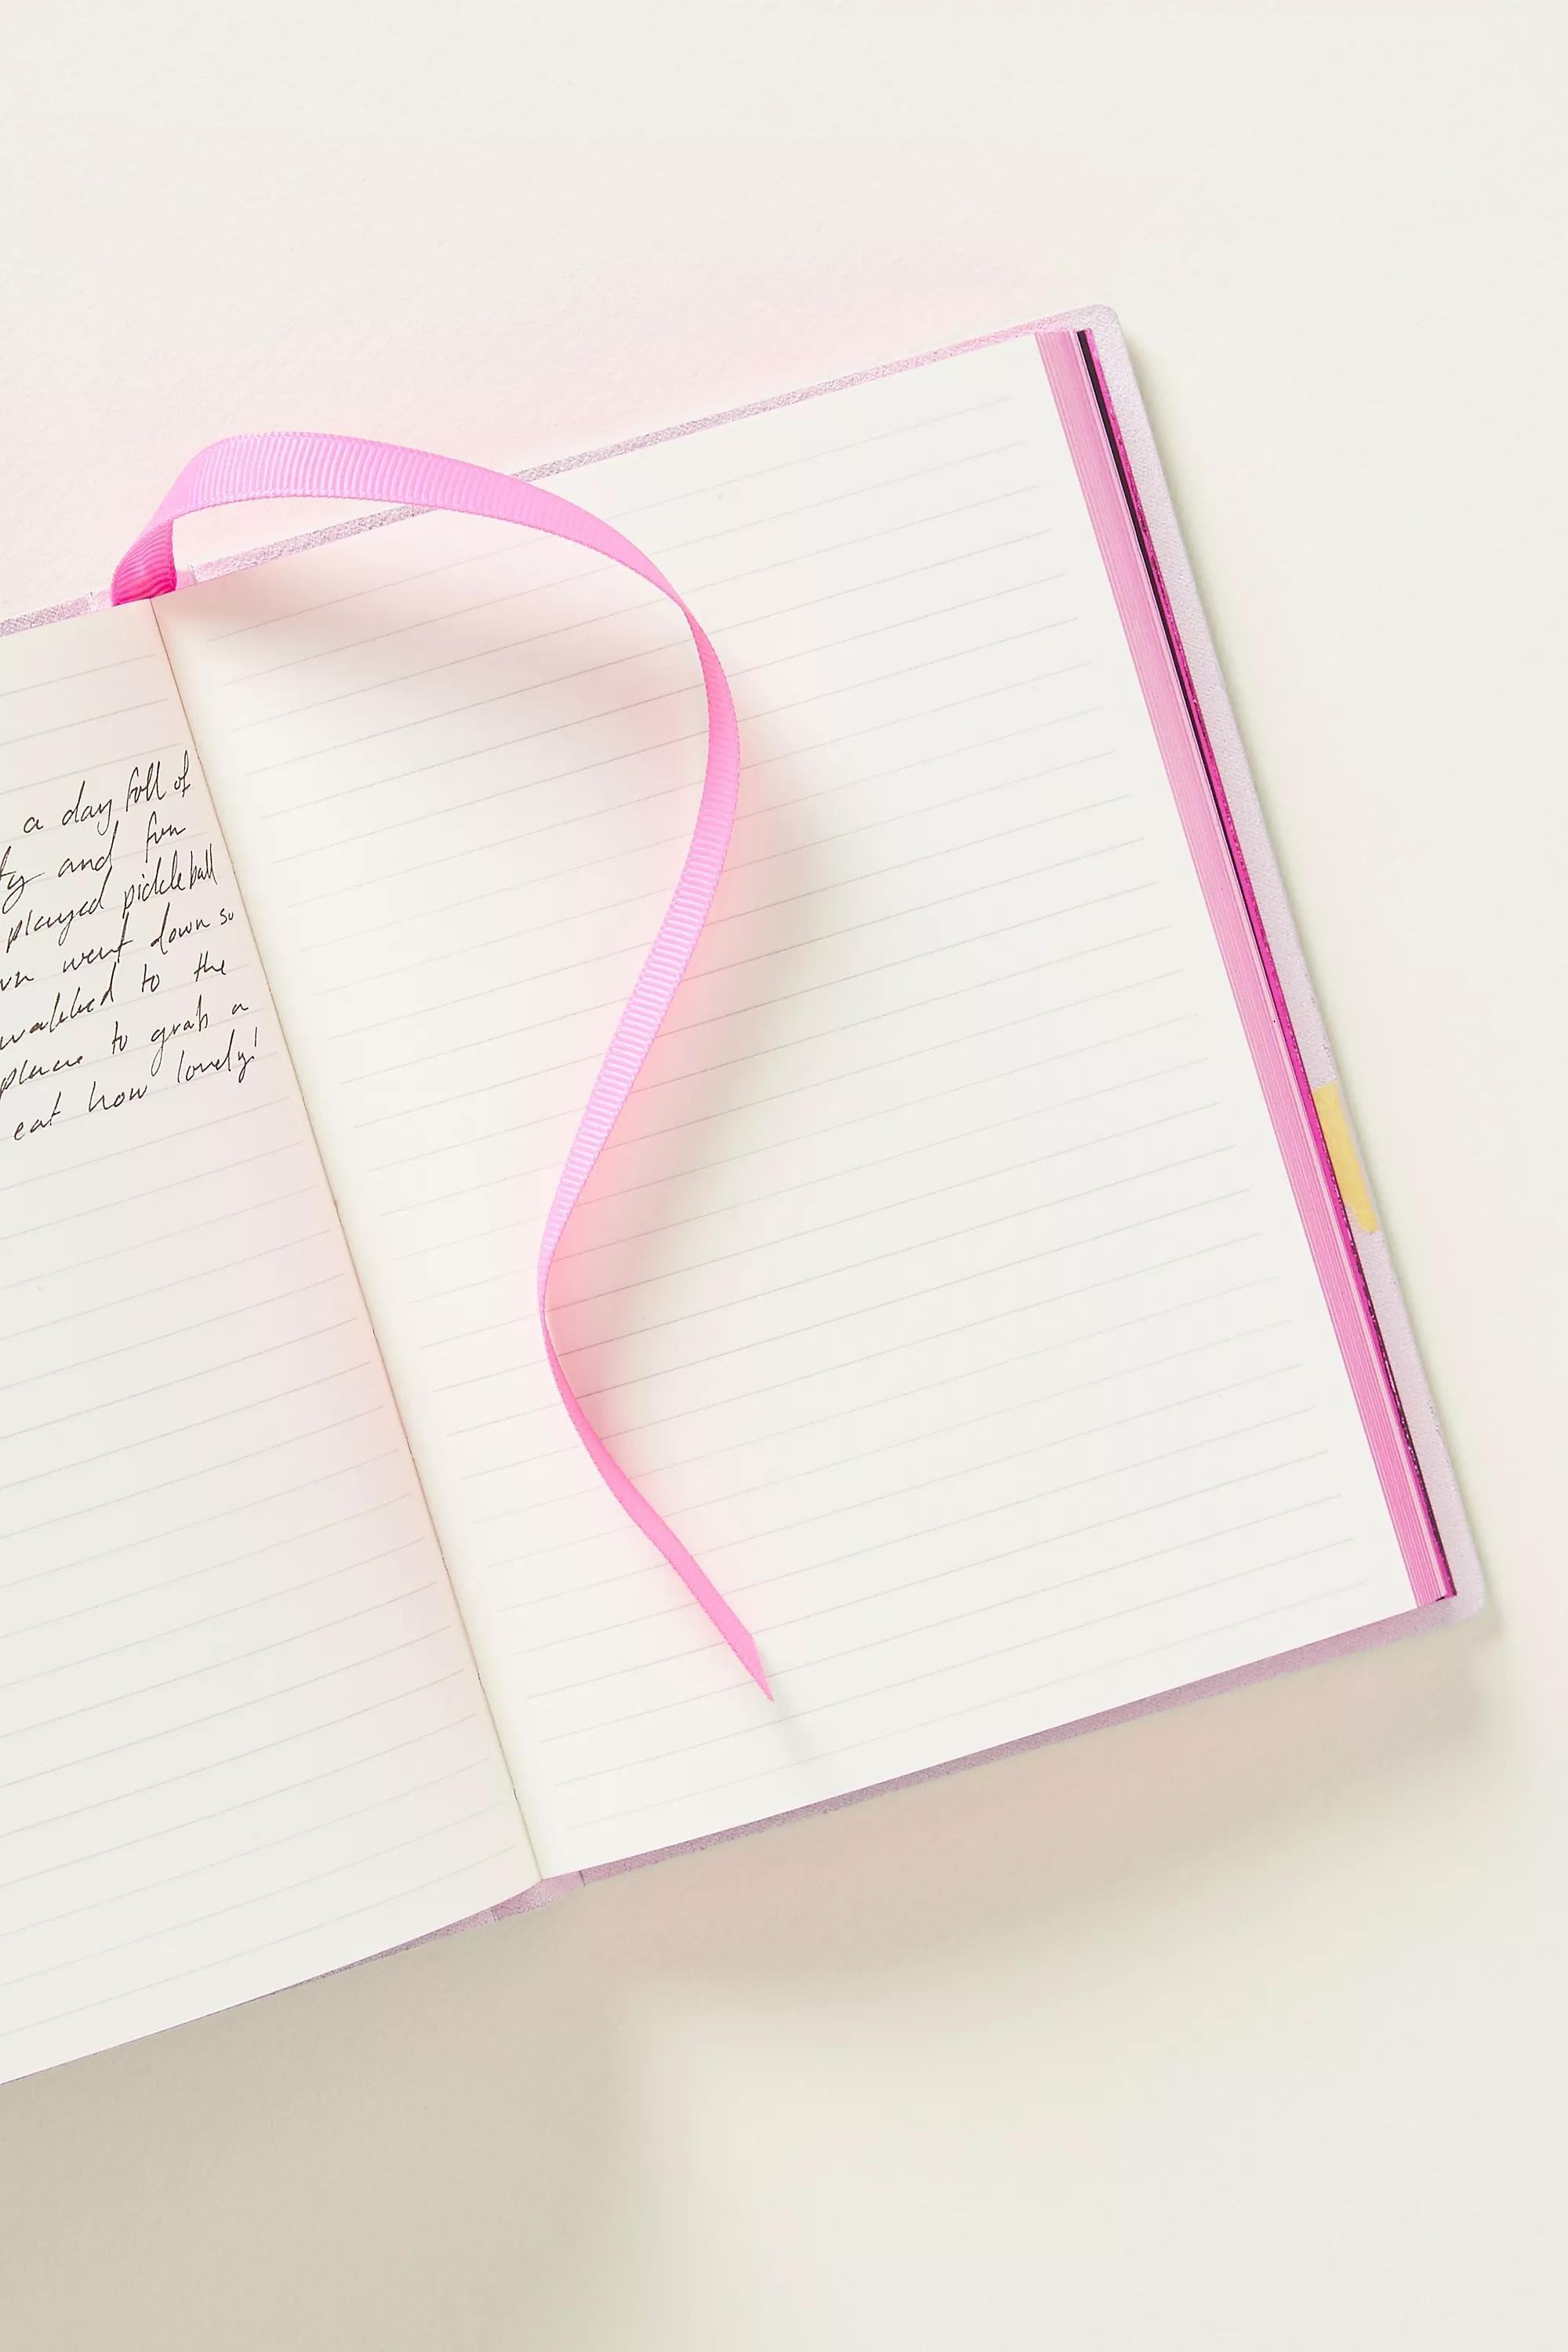 a day full of
and fun
played pickleball
went down so
walked to the
to grab a
eat how lovely!